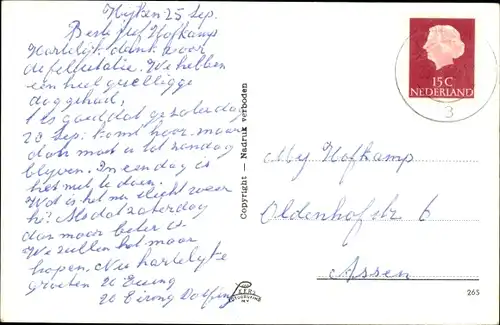 Nijken 25 sep.
Beste jef Hofkamp
Hartelijk dank voor
de felicitatie. We hebben
een heel gezellige
dag gehad,
t is goed dat ge zaterdag
28 sep. komt hoor. maar
dan moet u tot zondag
blijven. In een dag is
het niet te doen.
Wat is het nu slecht weer
hè. Als dat zaterdag
dan maar beter is
We zullen het maar
hopen. Nu hartelijke
groeten
Copyright — Nadruk verboden
15 C
NEDERLAND
3
Mej Hofkamp
Oldenhofstr 6
Assen
265